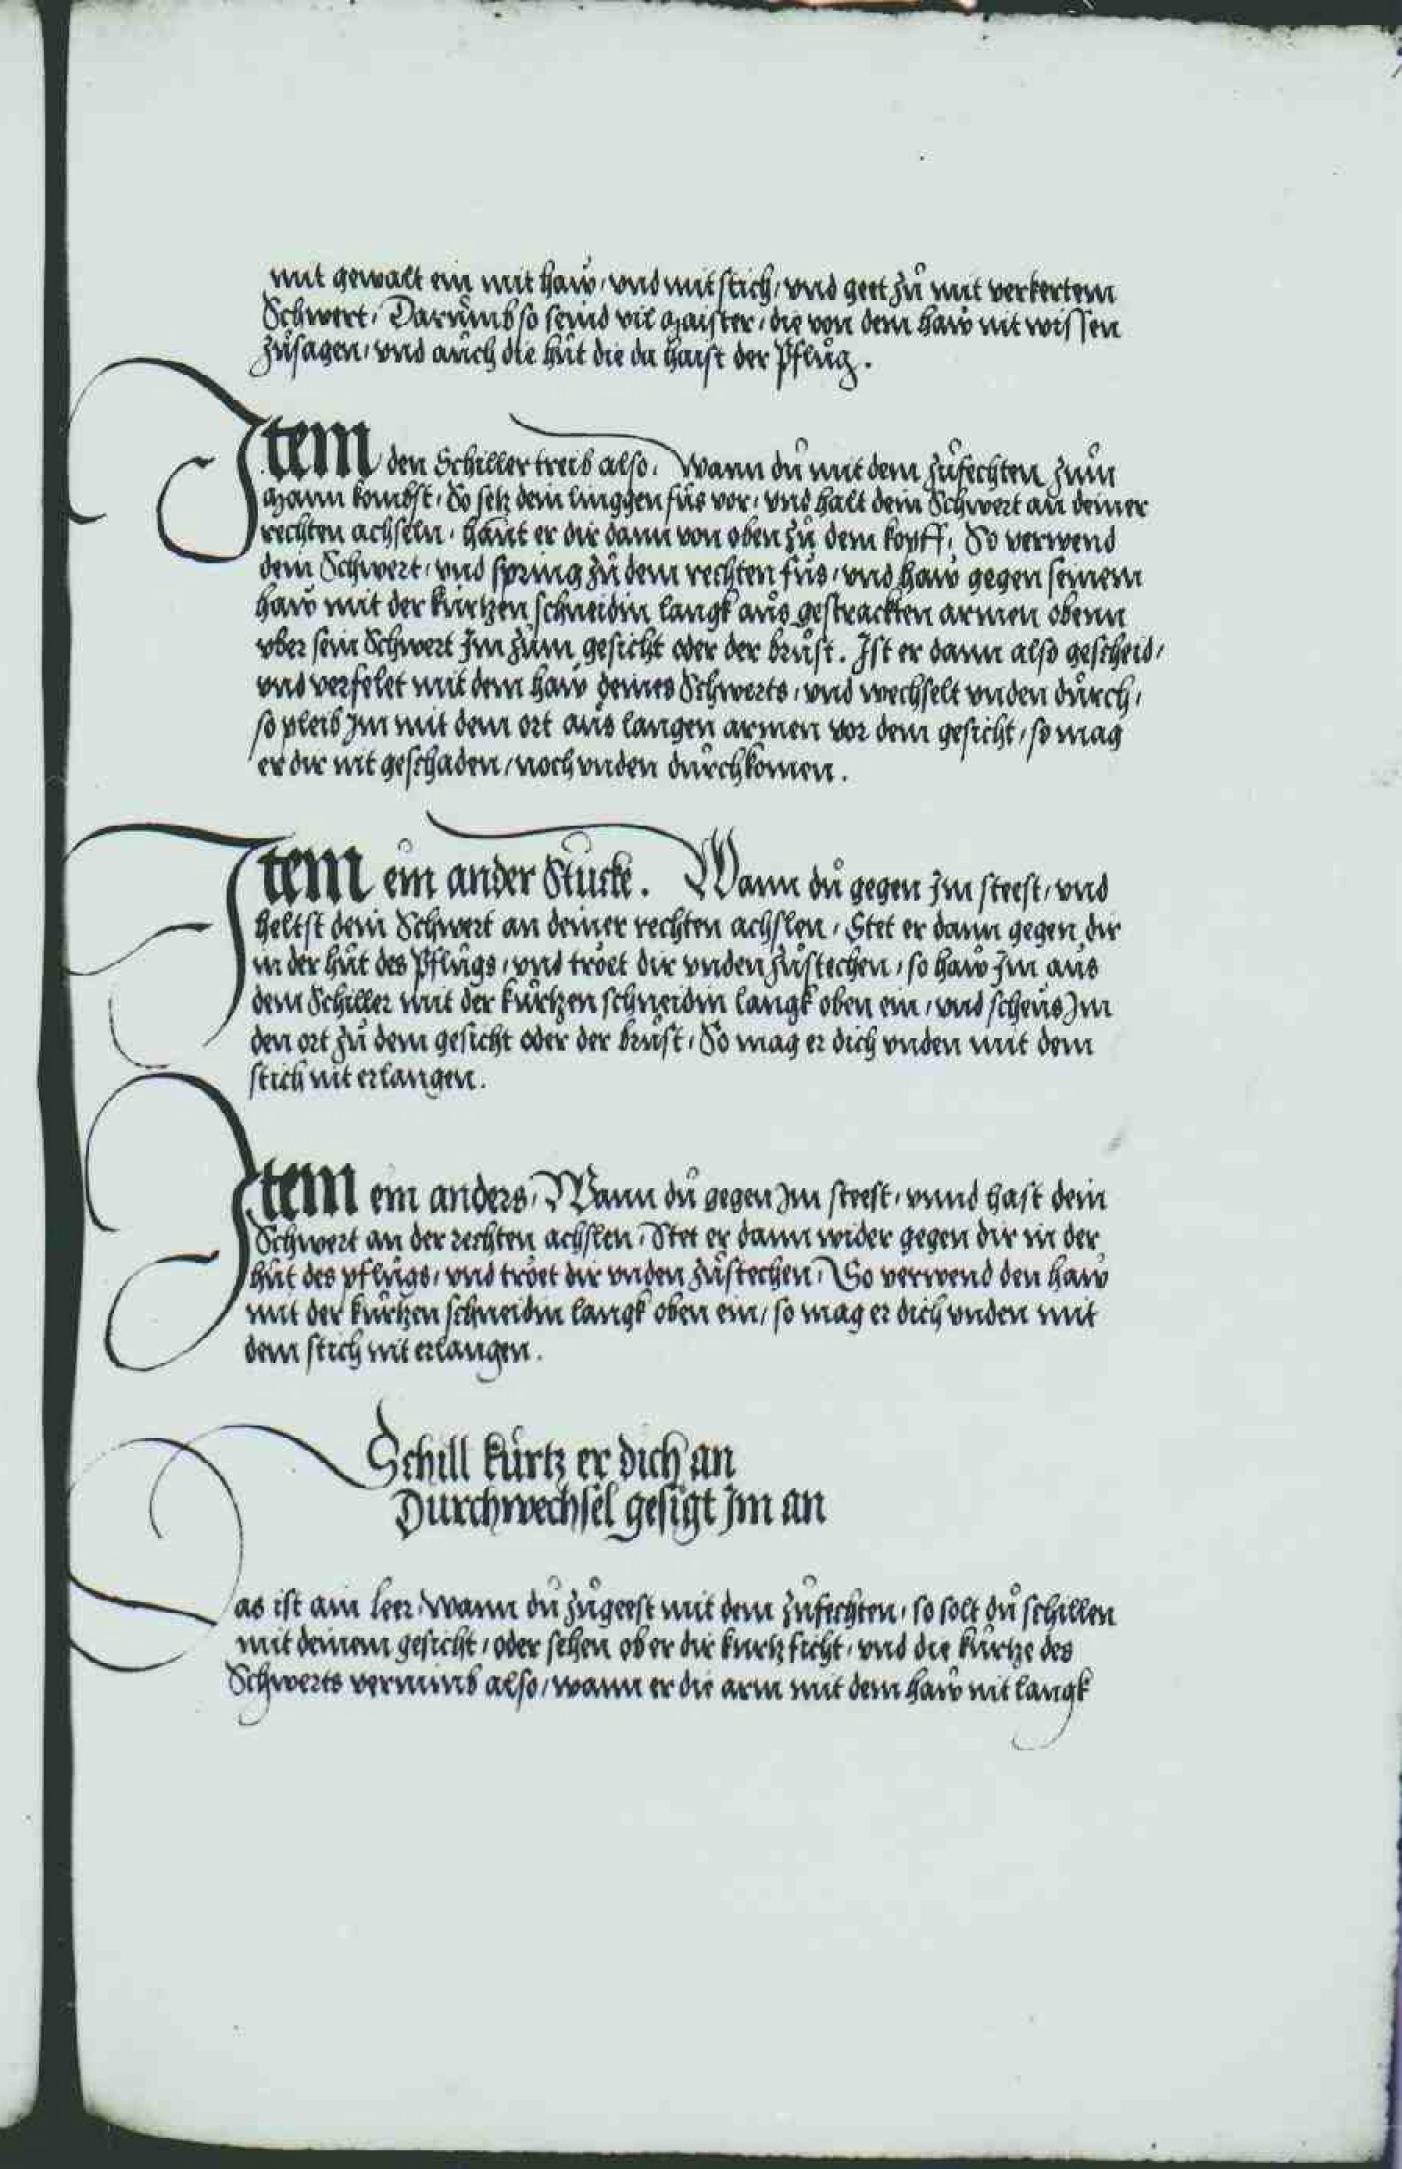 mit gewalt ein mit haw / vnd mit stich / vnd geet zů mit verkertem
Schwert / Darůmb so seind vil Maister / die von dem haw nit wissen
zůsagen / vnd aůch die hůt die da haist der Pflůg .
Item den Schiller treib also / Wann dů mit dem zůfechten zům
Mann kombst / So setz dein linggen fůs vor / vnd halt dein Schwert an deiner
rechten achseln / haůt er dir dann von oben zů dem kopff / So verwend
dein Schwert / vnd spring zů dem rechten fůs / vnd haw gegen seinem
haw mit der kůrtzen schneidin langk aůs gestrackten armen obenn
vber sein Schwert Jm zům gesicht oder der brůst . Ist er dann also gescheid /
vnd verfelet mit dem haw deines Schwerts / vnd wechselt vnden důrch /
so pleib Jm mit dem ort aůs langen armen vor dem gesicht / so mag
er dir nit geschaden / noch vnden důrchkomen .
Item ein ander Stůcke . Wann dů gegen Jm steest / vnd
heltst dein Schwert an deiner rechten achslen / Stet er dann gegen dir
in der hůt des Pflůgs / vnd tröet dir vnden zůstechen / so haw Jm aůs
dem Schiller mit der kůrtzen schneidin langk oben ein / vnd scheůs Jm
den ort zů dem gesicht oder der brůst / So mag er dich vnden mit dem
stich nit erlangen .
Item ein anders / Wann dů gegen Jm steest / vnnd hast dein
Schwert an der rechten achslen / Stet er dann wider gegen dir in der
hůt des pflůgs / vnd tröet dir vnden zůstechen / So verwend den haw
mit der kůrtzen schneidin langk oben ein / so mag er dich vnden mit
dem stich nit erlangen .
Schill kůrtz er dich an
Durchwechsel gesigt Jm an
as ist ain leer / Wann dů zůgeest mit dem zůfechten / so solt dů schillen
mit deinem gesicht / oder sehen ob er dir kurtz ficht / vnd die kůrtze des
Schwerts vernimb also / wann er die arm mit dem haw nit langk